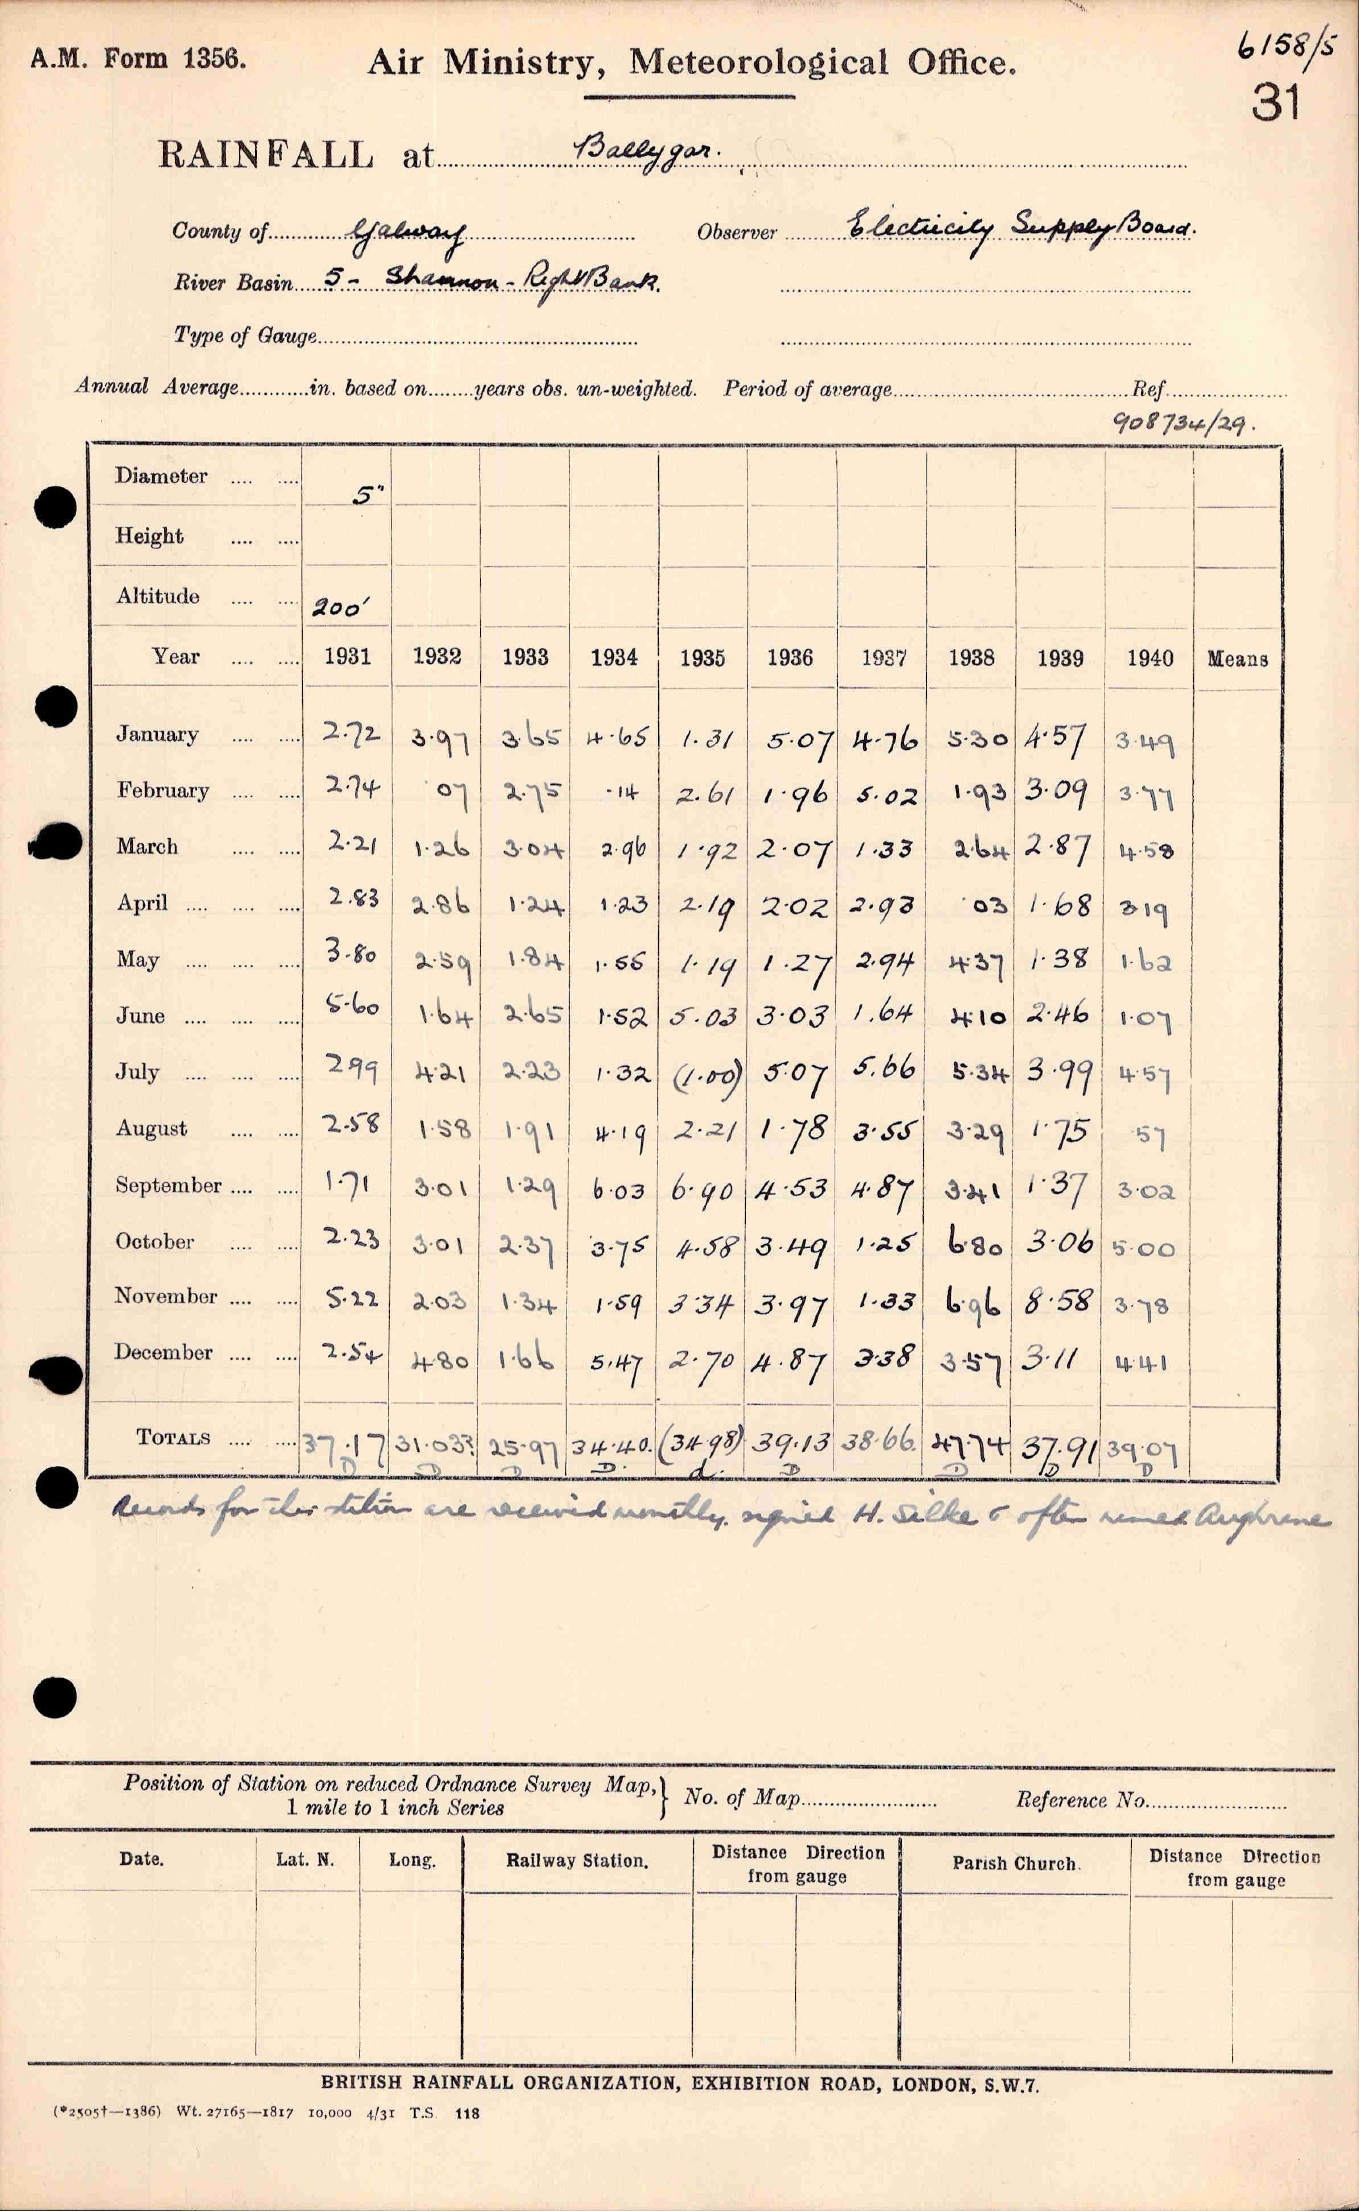 A.M. Form 1356.
Air Ministry, Meteorological Office.
6158/5
31
RAINFALL at Ballygar.
County of Galway Observer Electricity Supply Board.
River Basin 5 - Shannon - Right Bank.
Type of Gauge
Annual Average in. based on years obs. un-weighted. Period of average Ref.
908734/29.
Diameter 5"
Height
Altitude 200'
Year 1931 1932 1933 1934 1935 1936 1937 1938 1939 1940 Means
January 2.72 3.97 3.65 4.65 1.31 5.07 4.76 5.30 4.57 3.49
February 2.74 .07 2.75 .14 2.61 1.96 5.02 1.93 3.09 3.77
March 2.21 1.26 3.04 2.96 1.92 2.07 1.33 2.64 2.87 4.58
April 2.83 2.86 1.24 1.23 2.19 2.02 2.93 .03 1.68 3.19
May 3.80 2.59 1.84 1.55 1.19 1.27 2.94 4.37 1.38 1.62
June 5.60 1.64 2.65 1.52 5.03 3.03 1.64 4.10 2.46 1.07
July 2.99 4.21 2.23 1.32 (1.00) 5.07 5.66 5.34 3.99 4.57
August 2.58 1.58 1.91 4.19 2.21 1.78 3.55 3.29 1.75 .57
September 1.71 3.01 1.29 6.03 6.90 4.53 4.87 3.41 1.37 3.02
October 2.23 3.01 2.37 3.75 4.58 3.49 1.25 6.80 3.06 5.00
November 5.22 2.03 1.34 1.59 3.34 3.97 1.33 6.96 8.58 3.78
December 2.54 4.80 1.66 5.47 2.70 4.87 3.38 3.57 3.11 4.41
TOTALS 37.17 31.03? 25.97 34.40. (34.98) 39.13 38.66. 47.74 37.91 39.07
D D D D. d. D D D D
Records for this station are received monthly. signed H. Silke & often named Aughrane
Position of Station on reduced Ordnance Survey Map, } No. of Map Reference No.
1 mile to 1 inch Series
Date. Lat. N. Long. Railway Station. Distance Direction from gauge Parish Church. Distance Direction from gauge
BRITISH RAINFALL ORGANIZATION, EXHIBITION ROAD, LONDON, S.W.7.
(*2505†—1386) Wt. 27165—1817 10,000 4/31 T.S. 118